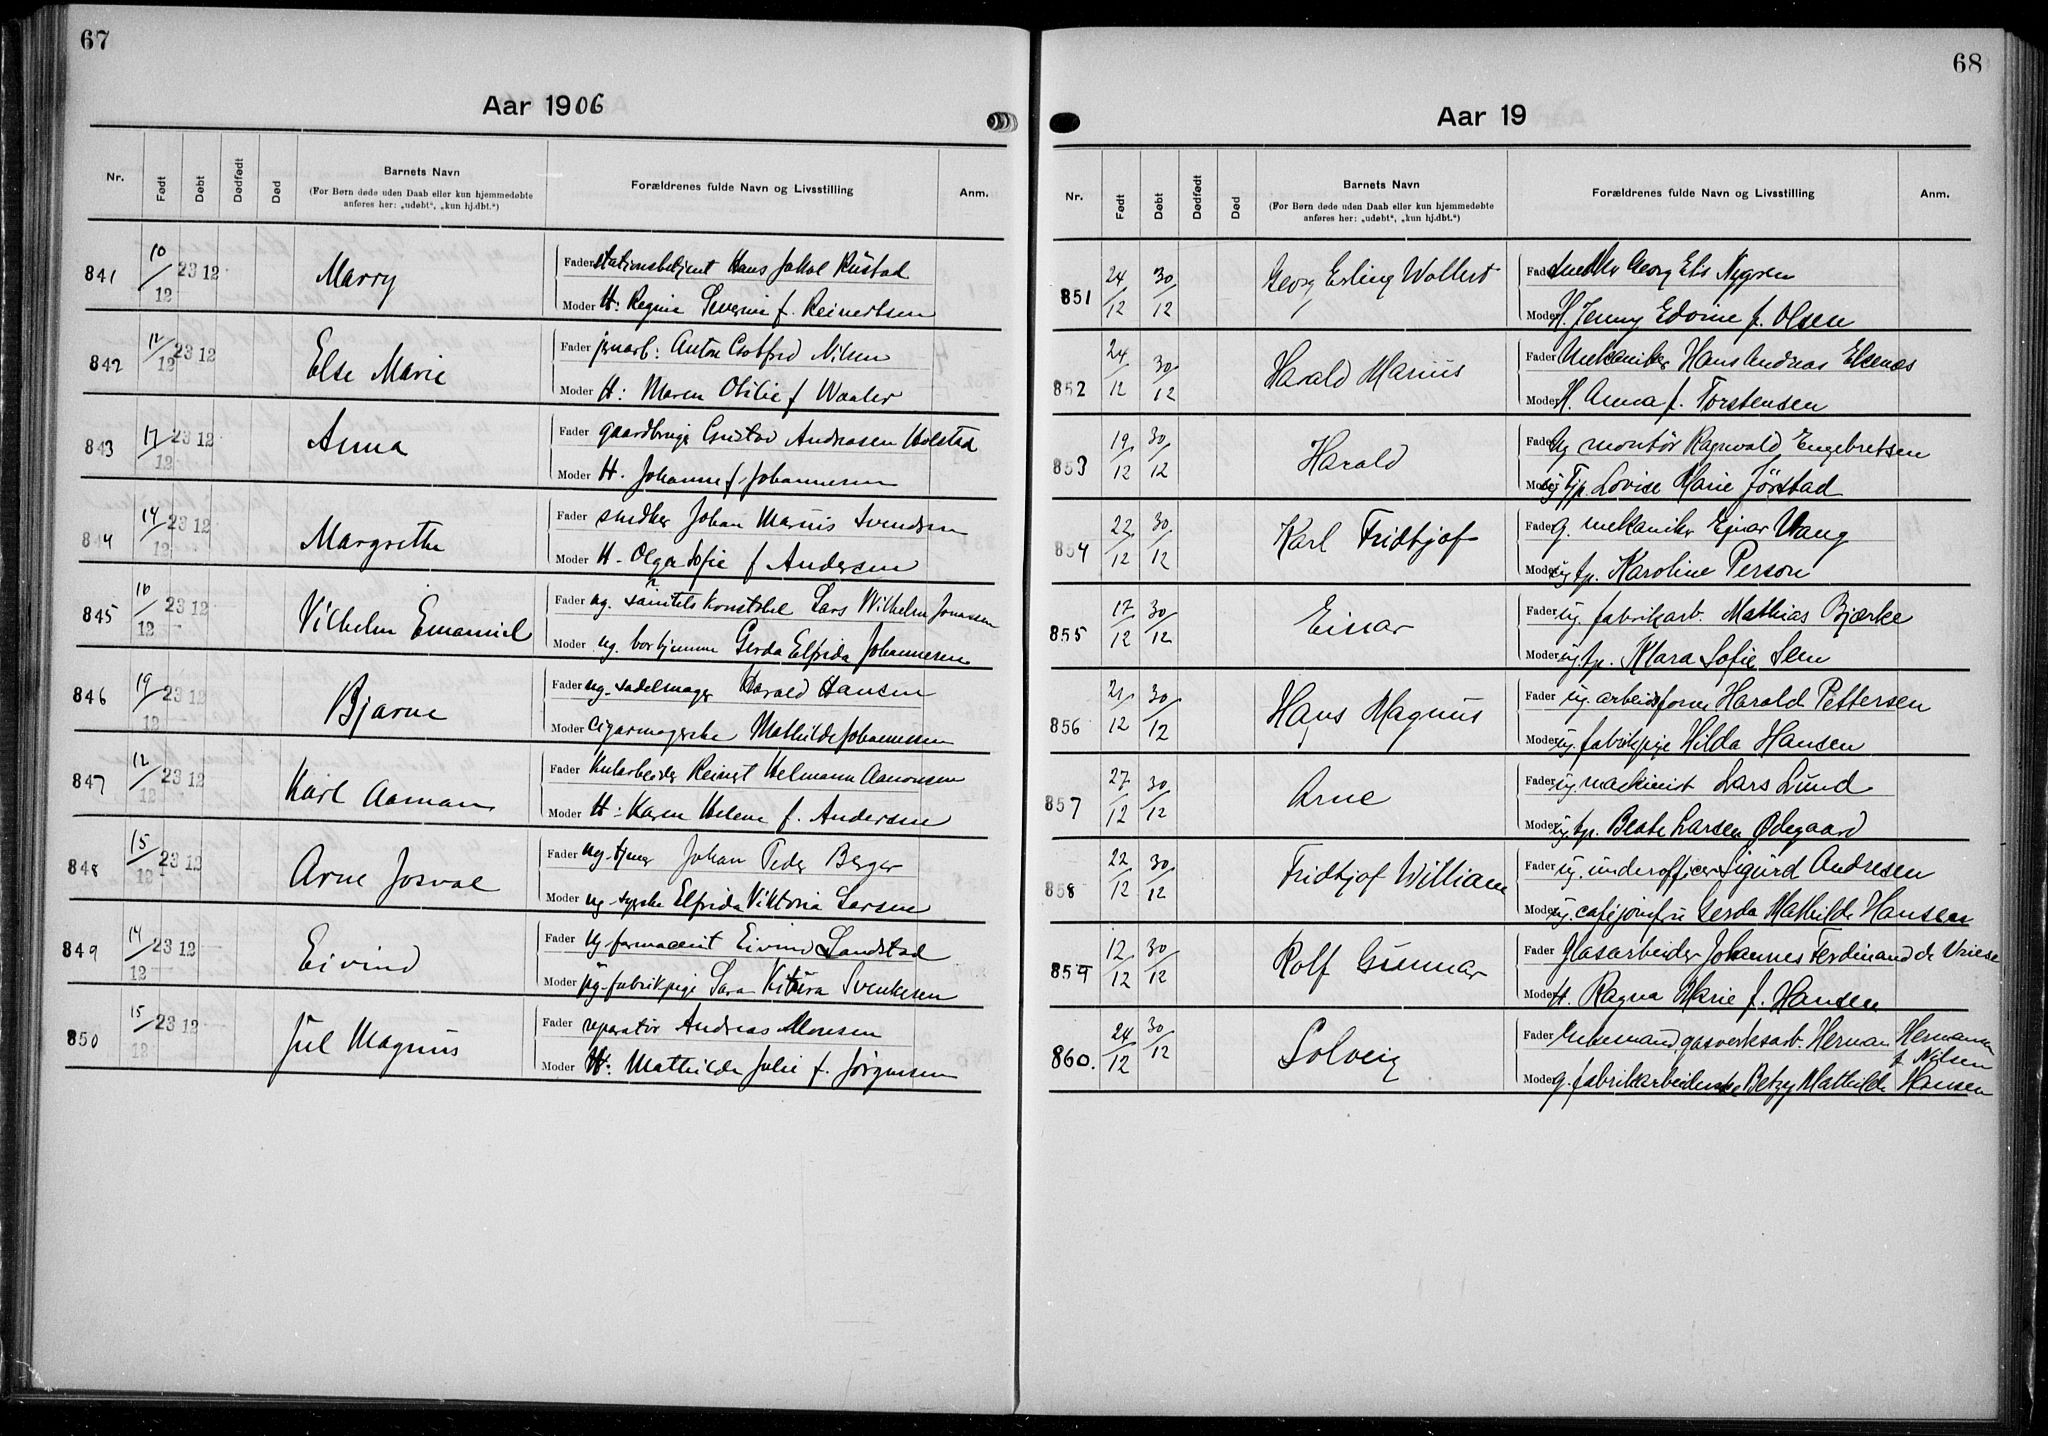 67
Aar 1906
Nr. Født Døbt Dødfødt Død Barnets Navn Forældrenes fulde Navn og Livsstilling Anm.
(For Børn døde uden Daab eller kun hjemmedøbte
anføres her: „udøbt“, „kun hj.dbt.“)
841 10/12 23 12 Marry Fader stationsbetjent Hans Jakob Rustad
Moder H: Regine Severine f. Reinertsen
842 12/12 23 12 Else Marie Fader jernarb: Anton Gotfred Nilsen
Moder H: Maren Otilie f Waaler
843 17/12 23 12 Anna Fader gaardbruger Gustav Andreasen Holstad
Moder H. Johanne f. Johannesen
844 14/12 23 12 Margrethe Fader snedker Johan Marius Svendsen
Moder H. Olga Sofie f Andersen
845 16/12 23 12 Vilhelm Emanuel Fader ug. Lars Wilhelm Jonassen
Moder ug. Gerda Elfrida Johannesen
846 19/12 23 12 Bjarne Fader ug. sadelmager Harald Hansen
Moder cigarmagerske Mathilde Johannessen
847 12/12 23 12 Karl Aaman Fader Kularbeider Reinert Helmann Aanonsen
Moder H: Karen Helene f. Andersen
848 15/12 23 12 Arne Josval Fader ug. tjener Johan Peder Berger
Moder ug. syerske Elfrida Viktoria Larsen
849 14/12 23 12 Eivind Fader ug. farmaceut Eivind Sandstad
Moder ug. fabrikpige Sara Svenksen
850 15/12 23 12 Jul Magnus Fader reparatør Andreas Monsen
Moder H: Mathilde Julie f. Jørgensen
68
Aar 19
Nr. Født Døbt Dødfødt Død Barnets Navn Forældrenes fulde Navn og Livsstilling Anm.
(For Børn døde uden Daab eller kun hjemmedøbte
anføres her: „udøbt“, „kun hj.dbt.“)
851 24/12 30/12 Georg Erling Wollert Fader snedker Georg Elis Nygren
Moder H. Jenny Edvine f. Olsen
852 24/12 30/12 Harald Marius Fader Mekaniker Hans Andreas Elsenæs
Moder H. Anna f. Torstensen
853 19/12 30/12 Harald Fader Ug montør Ragnvald Engebretsen
Moder ug tjp. Lovise Marie Jørstad
854 22/12 30/12 Karl Fridtjof Fader g. mekaniker Ejnar Wang
Moder ug tp. Karoline Person
855 17/12 30/12 Einar Fader ug. fabrikarb. Mathias Bjærke
Moder ug. tp. Klara Sofie Seen
856 21/12 30/12 Hans Magnus Fader ug. arbeidsform Harald Pettersen
Moder ug. fabrikpige Hilda Hansen
857 27/12 30/12 Arne Fader ug. maskinist Lars Lund
Moder ug. tp. Beate Larsen Ødegaard
858 22/12 30/12 Fridtjof William Fader ug. underofficer Sigurd Andresen
Moder ug. cafejomfru Gerda Mathilde Hansen
859 12/12 30/12 Rolf Gunnar Fader Glasarbeider Johannes Ferdinand de Vriese
Moder H. Ragna Marie f. Hansen
860. 24/12 30/12 Solveig Fader Enkemand, gasverksarb. Herman Hermansen
f. Nilsen
Moder g. fabrikarbeiderske Betzy Mathilde Hansen